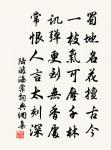 蜀地名花擅古今
一枝氣可壓千林
譏彈更到無香處
常恨人言太刻深
陸游海棠詞典網集